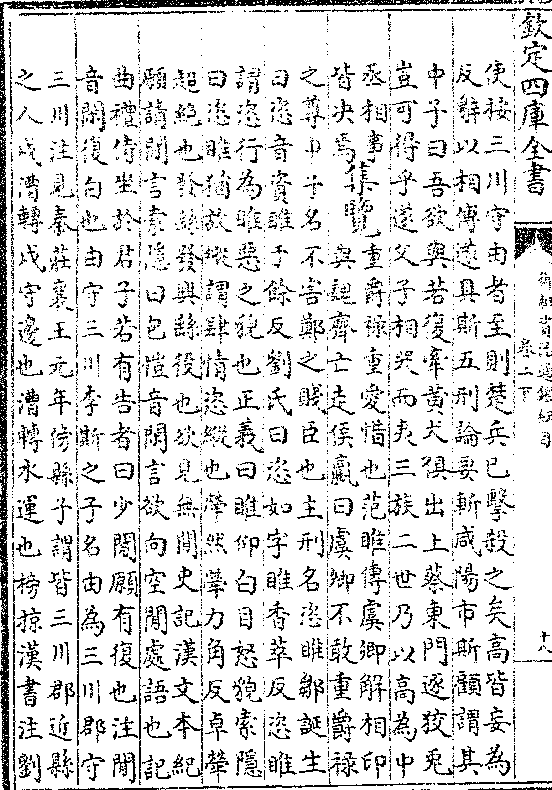 欽定四庫全書
御批資治通鑑綱目
卷二下
十八
使按三川守由者至則楚兵已擊殺之矣高皆妄為
反辭以相傅遂具斯五刑論要斬咸陽市斯顧謂其
中子曰吾欲與若復牽黃犬俱出上蔡東門逐狡兎
豈可得乎遂父子相哭而夷三族二世乃以高為中
丞相事
皆決焉集覽重爵祿重愛惜也范睢傳虞卿解相印
與魏齊亡走侯嬴曰虞卿不敢重爵祿
之尊申子名不害鄭之賤臣也主刑名恣睢鄒誕生
曰恣音資睢千餘反劉氏曰恣如字睢香萃反恣睢
謂恣行為睢惡之貌也正義曰睢仰白目怒貌索隱
曰恣睢猶放縱謂肆情恣縱也犖然犖力角反卓犖
超絶也發繇發興繇役也欲見無閒史記漢文本紀
願請閒言索隱曰包愷音閑言欲向空閒處語也記
曲禮侍坐於君子若有告者曰少閒願有復也注閒
音閑復白也由守三川李斯之子名由為三川郡守
三川注見秦莊襄王元年傍縣子謂皆三川郡近縣
之人戍漕轉戍守邊也漕轉水運也榜掠漢書注劉